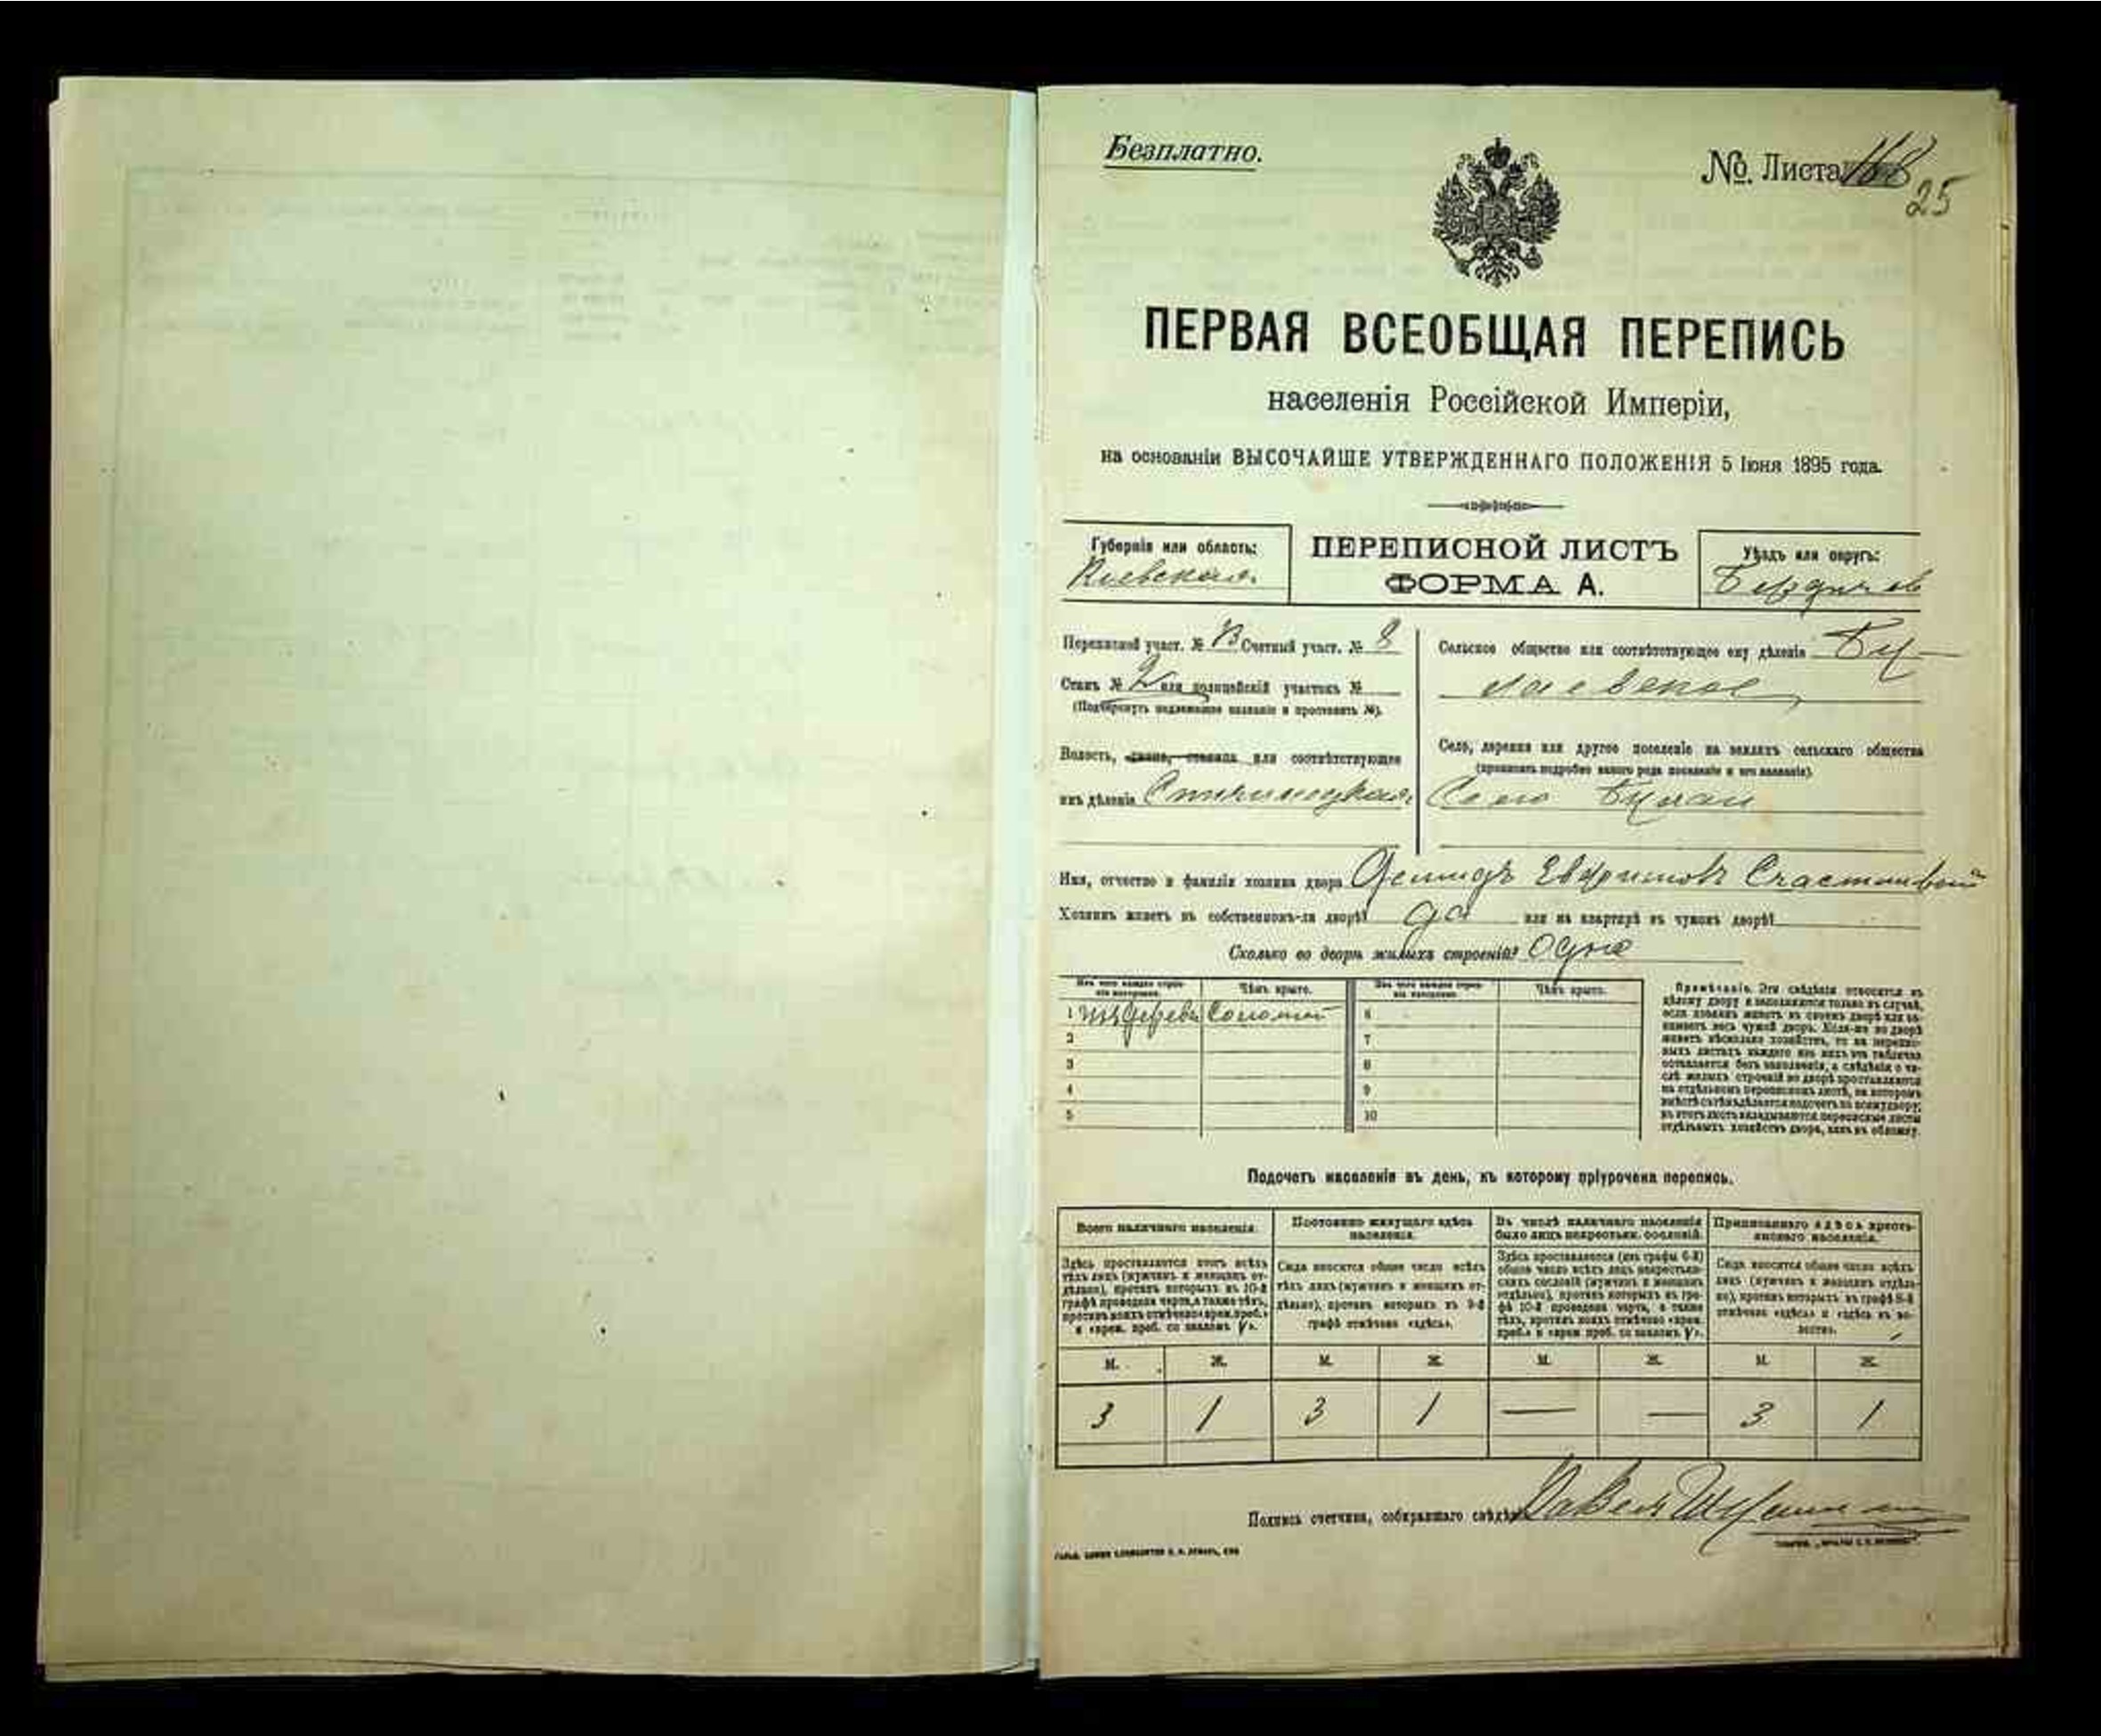 Безплатно.
№. Листа 168
25
ПЕРВАЯ ВСЕОБЩАЯ ПЕРЕПИСЬ
населенія Россійской Имперіи,
на основаніи ВЫСОЧАЙШЕ УТВЕРЖДЕННАГО ПОЛОЖЕНІЯ 5 Іюня 1895 года.
Губернія или область:
Кіевская
ПЕРЕПИСНОЙ ЛИСТЪ
ФОРМА А.
Уѣздъ или округъ:
Бердичев
Переписной участ. № Счетный участ. № 8
Станъ № 2 или полицейскій участокъ №
(Подчеркнуть надлежащее названіе и проставить №).
Волость, гмина, станица или соотвѣтствующее
имъ дѣленіе
Сельское общество или соотвѣтствующее ему дѣленіе Бу-
лаевское
Село, деревня или другое поселеніе на земляхъ сельскаго общества
(прописать подробно какого рода поселеніе и его названіе).
Село Булаи
Имя, отчество и фамилія хозяина двора Демидъ Евфимовъ Счастливый
Хозяинъ живетъ въ собственномъ-ли дворѣ? да или на квартирѣ въ чужомъ дворѣ?
Сколько во дворѣ жилыхъ строеній? Одно
Изъ чего каждое строеніе построено.
Чѣмъ крыто.
Изъ чего каждое строеніе построено.
Чѣмъ крыто.
1 изъ дерева Соломой 6
2 7
3 8
4 9
5 10
Примѣчаніе. Эти свѣдѣнія относятся къ
цѣлому двору и заполняются только въ случаѣ,
если хозяинъ живетъ въ своемъ дворѣ или за-
нимаетъ весь чужой дворъ. Если-же во дворѣ
живетъ нѣсколько хозяйствъ, то на перепис-
ныхъ листахъ каждаго изъ нихъ эта табличка
оставляется безъ заполненія, а свѣдѣнія о чи-
слѣ жилыхъ строеній во дворѣ проставляются
на отдѣльномъ переписномъ листѣ, на которомъ
вмѣстѣ съ тѣмъ дѣлается подсчетъ по всему двору;
въ этотъ листъ вкладываются переписные листы
отдѣльныхъ хозяйствъ двора, какъ въ обложку.
Подсчетъ населенія въ день, къ которому пріурочена перепись.
Всего наличнаго населенія.
Здѣсь проставляются итогъ всѣхъ
тѣхъ лицъ (мужчинъ и женщинъ от-
дѣльно), противъ которыхъ въ 10-й
графѣ проведена черта, а также тѣхъ,
противъ коихъ отмѣчено «врем. преб.»
и «врем. преб. со знакомъ V».
Постоянно живущаго здѣсь
населенія.
Сюда вносится общее число всѣхъ
тѣхъ лицъ (мужчинъ и женщинъ от-
дѣльно), противъ которыхъ въ 9-й
графѣ отмѣчено «здѣсь».
Въ числѣ наличнаго населенія
было лицъ некрестьян. сословій.
Здѣсь проставляется (изъ графы 6-й)
общее число всѣхъ лицъ некрестьян-
скихъ сословій (мужчинъ и женщинъ
отдѣльно), противъ которыхъ въ гра-
фѣ 10-й проведена черта, а также
тѣхъ, противъ коихъ отмѣчено «врем.
преб.» и «врем преб. со знакомъ V».
Приписаннаго здѣсь кресть-
янскаго населенія.
Сюда вносится общее число всѣхъ
лицъ (мужчинъ и женщинъ отдѣль-
но), противъ которыхъ въ графѣ 8-й
отмѣчено «здѣсь» и «здѣсь въ во-
лости».
М. Ж. М. Ж. М. Ж. М. Ж.
3 1 3 1 — — 3 1
Подпись счетчика, собиравшаго свѣдѣнія Павелъ